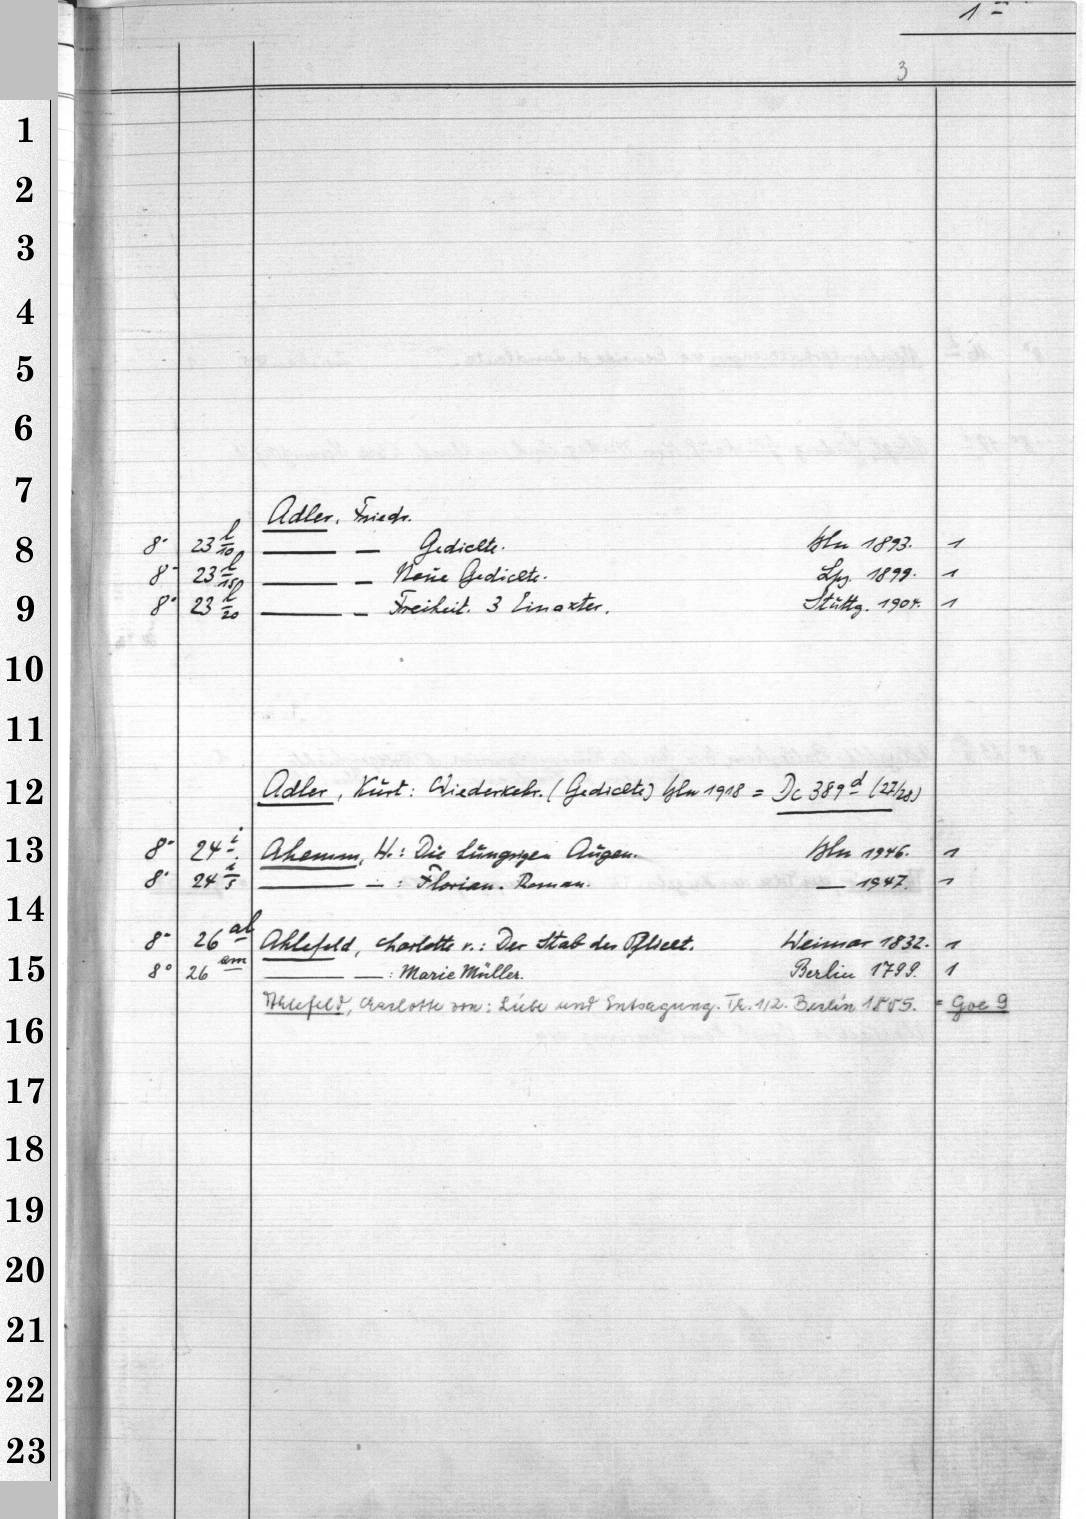 1
3
1
2
3
4
5
6
7
Adler, Friedr.
8 8° 23 l/10 ——— — Gedichte. Bln 1893. 1
8° 23 l/150 ——— — Neue Gedichte. Lpz. 1899. 1
9 8° 23 l/20 ——— — Freiheit. 3 Einakter. Stuttg. 1904. 1
10
11
12 Adler, Kurt: Wiederkehr. (Gedichte) Bln 1918 = Dc 389 d (27/28)
13 8° 24 i Ahemm, H.: Die hungrigen Augen. Bln 1946. 1
8° 24 i/5 ——— — : Florian. Roman. — 1947. 1
14
8° 26 al Ahlefeld, Charlotte v.: Der Stab der Pflicht. Weimar 1832. 1
15 8° 26 am ——— — : Marie Müller. Berlin 1799. 1
Ahlefeld, Charlotte von: Liebe und Entsagung. Th. 1/2. Berlin 1805. = Goe 9
16
17
18
19
20
21
22
23